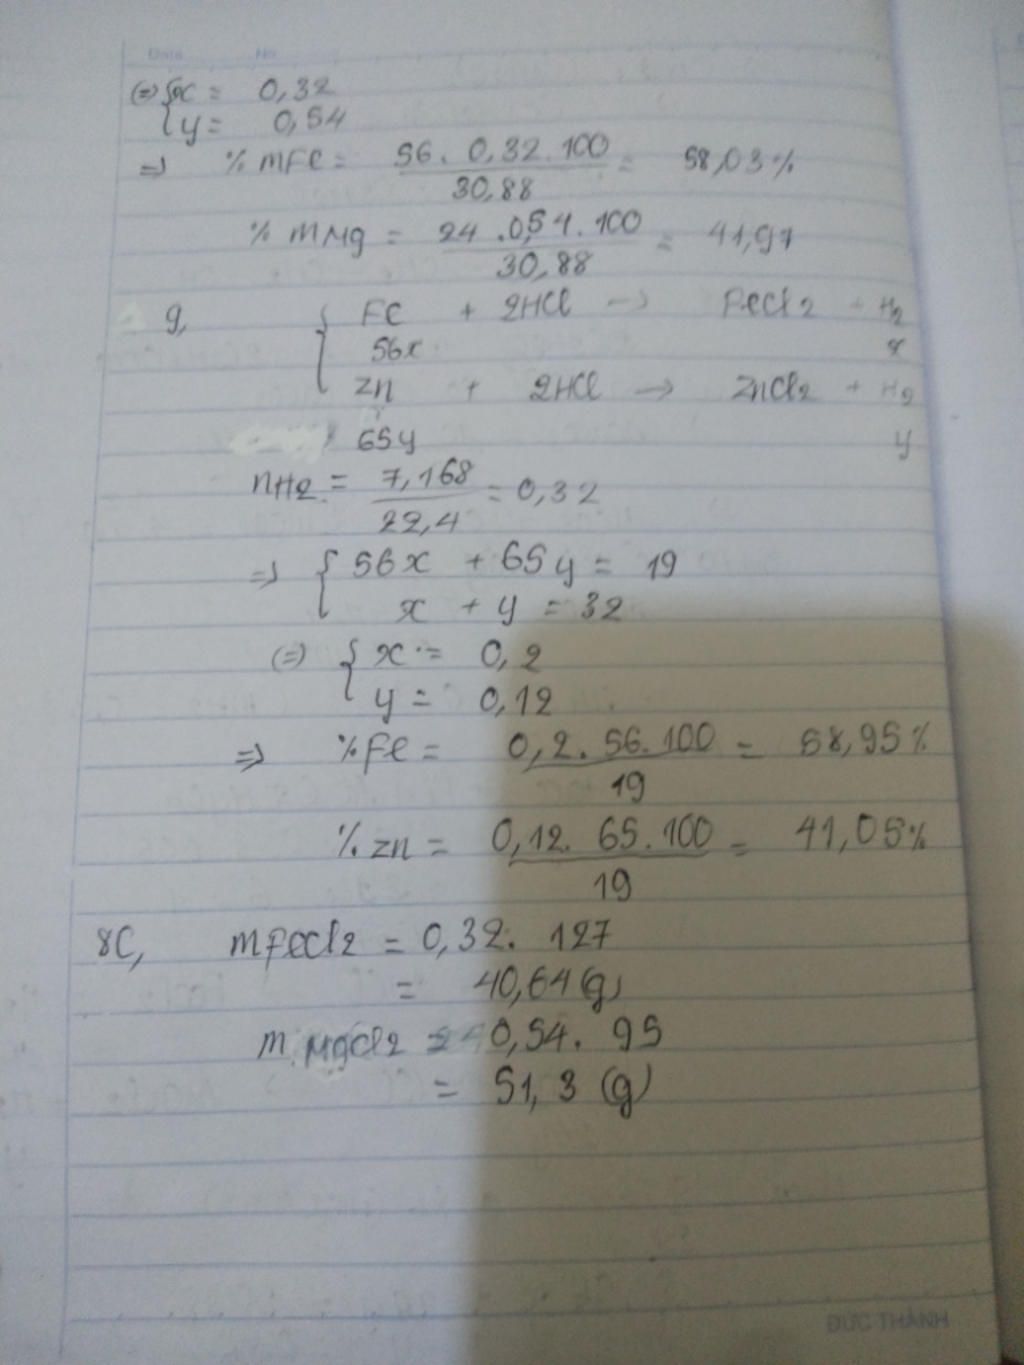 Date No
(=) { x = 0,32
{ y = 0,54
=> % mFe = 56. 0,32. 100 / 30,88 = 58,03%
% mMg = 24 .0,54. 100 / 30,88 = 41,97
9, { Fe + 2HCl -> FeCl2 + H2
56x x
Zn + 2HCl -> ZnCl2 + H2
65y y
nH2 = 7,168 / 22,4 = 0,32
=> { 56x + 65y = 19
x + y = 32
(=) { x = 0,2
y = 0,12
=> % Fe = 0,2. 56. 100 / 19 = 58,95%
% Zn = 0,12. 65. 100 / 19 = 41,05%
8C, mFeCl2 = 0,32. 127
= 40,64 (g)
m MgCl2 = 0,54. 95
= 51,3 (g)
ĐỨC THÀNH